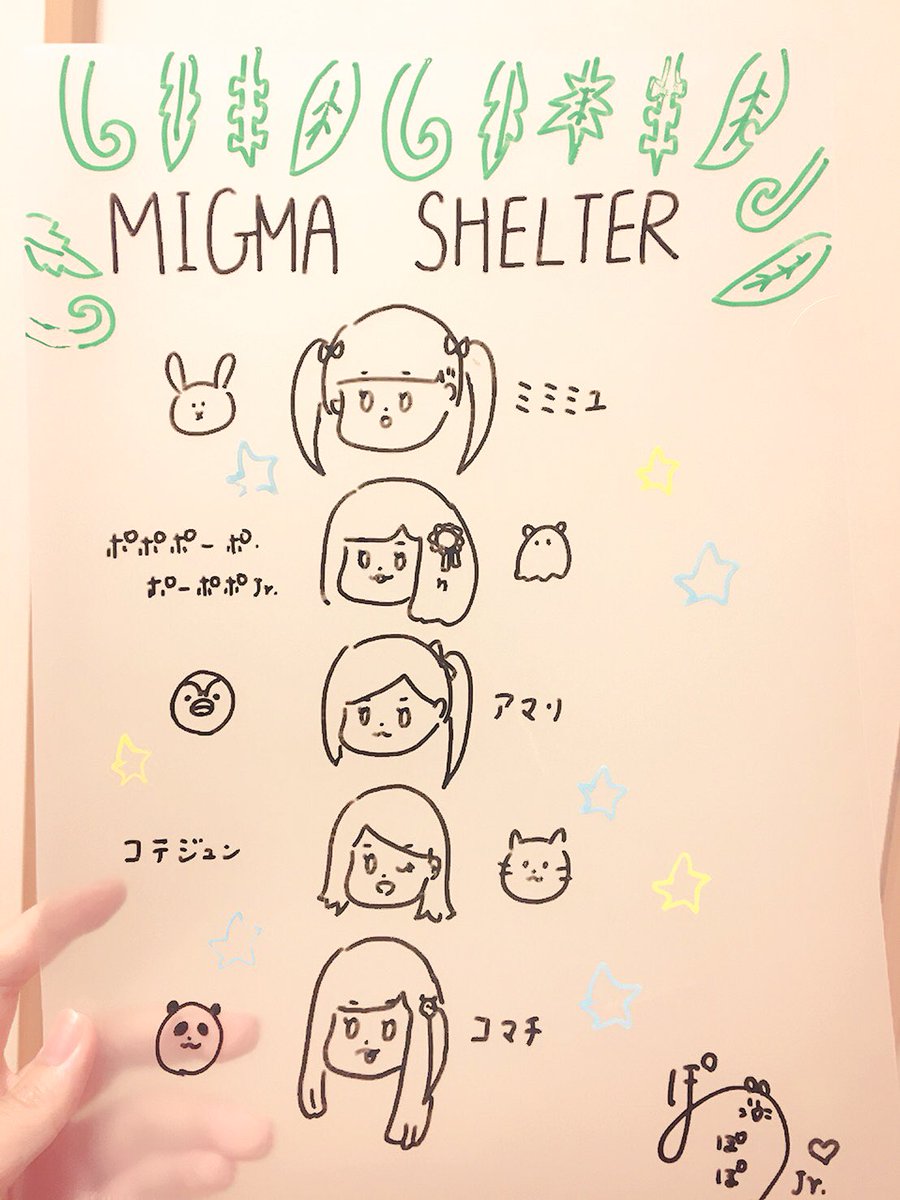 MIGMA SHELTER
ミミミユ
ポポポーポ.
ポーポポJr.
アマリ
コテジュン
コマチ
ぽ
ぽ
ぽ
Jr.